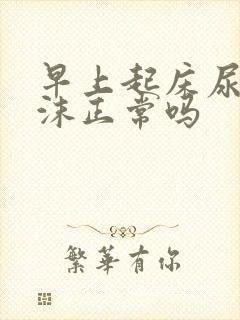 早上起床尿
沫正常吗
繁华有你